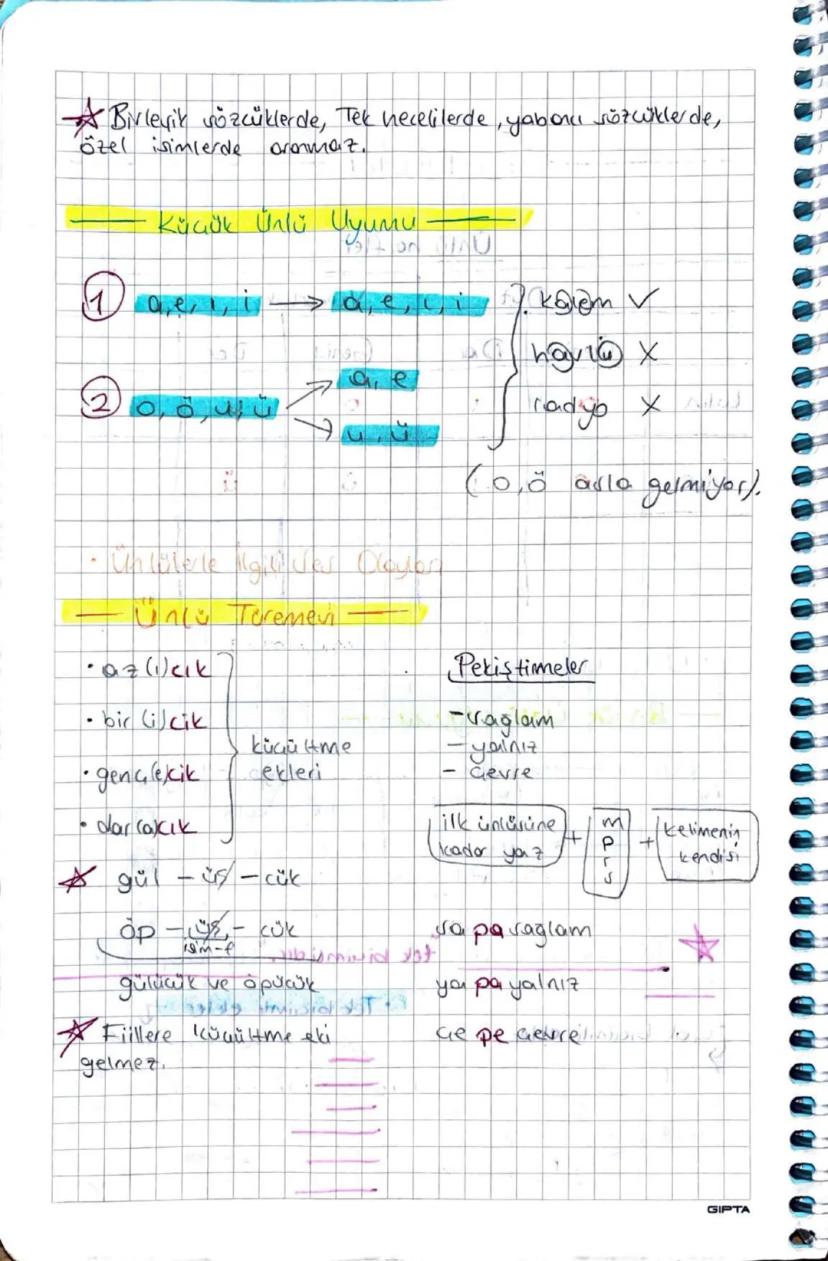 ☆ Birleşik sözcüklerde, Tek hecelilerde, yabancı sözcüklerde,
özel isimlerde aranmaz.
Küçük Ünlü Uyumu
① a, e, ı, i → a, e, ı, i
② o, ö, u, ü → a, e
→ u, ü
kalem ✓
havlu X
radyo X
(o, ö asla gelmiyor).
• Ünlülerle İlgili Ses Olayları
Ünlü Türemesi
• az(ı)cık
• bir(i)cik
• genç(e)cik
• dar(a)cık
küçültme
ekleri
☆ gül - üş - cük
öp - üş - cük
isim-f
gülücük ve öpücük
☆ Fiillere küçültme eki
gelmez.
Pekiştirmeler
- sağlam
- yalnız
- çevre
ilk ünlüsüne
kadar yaz
+
m
p
r
s
+
kelimenin
kendisi
sa pa sağlam
ya pa yalnız
çe pe çevre
GIPTA